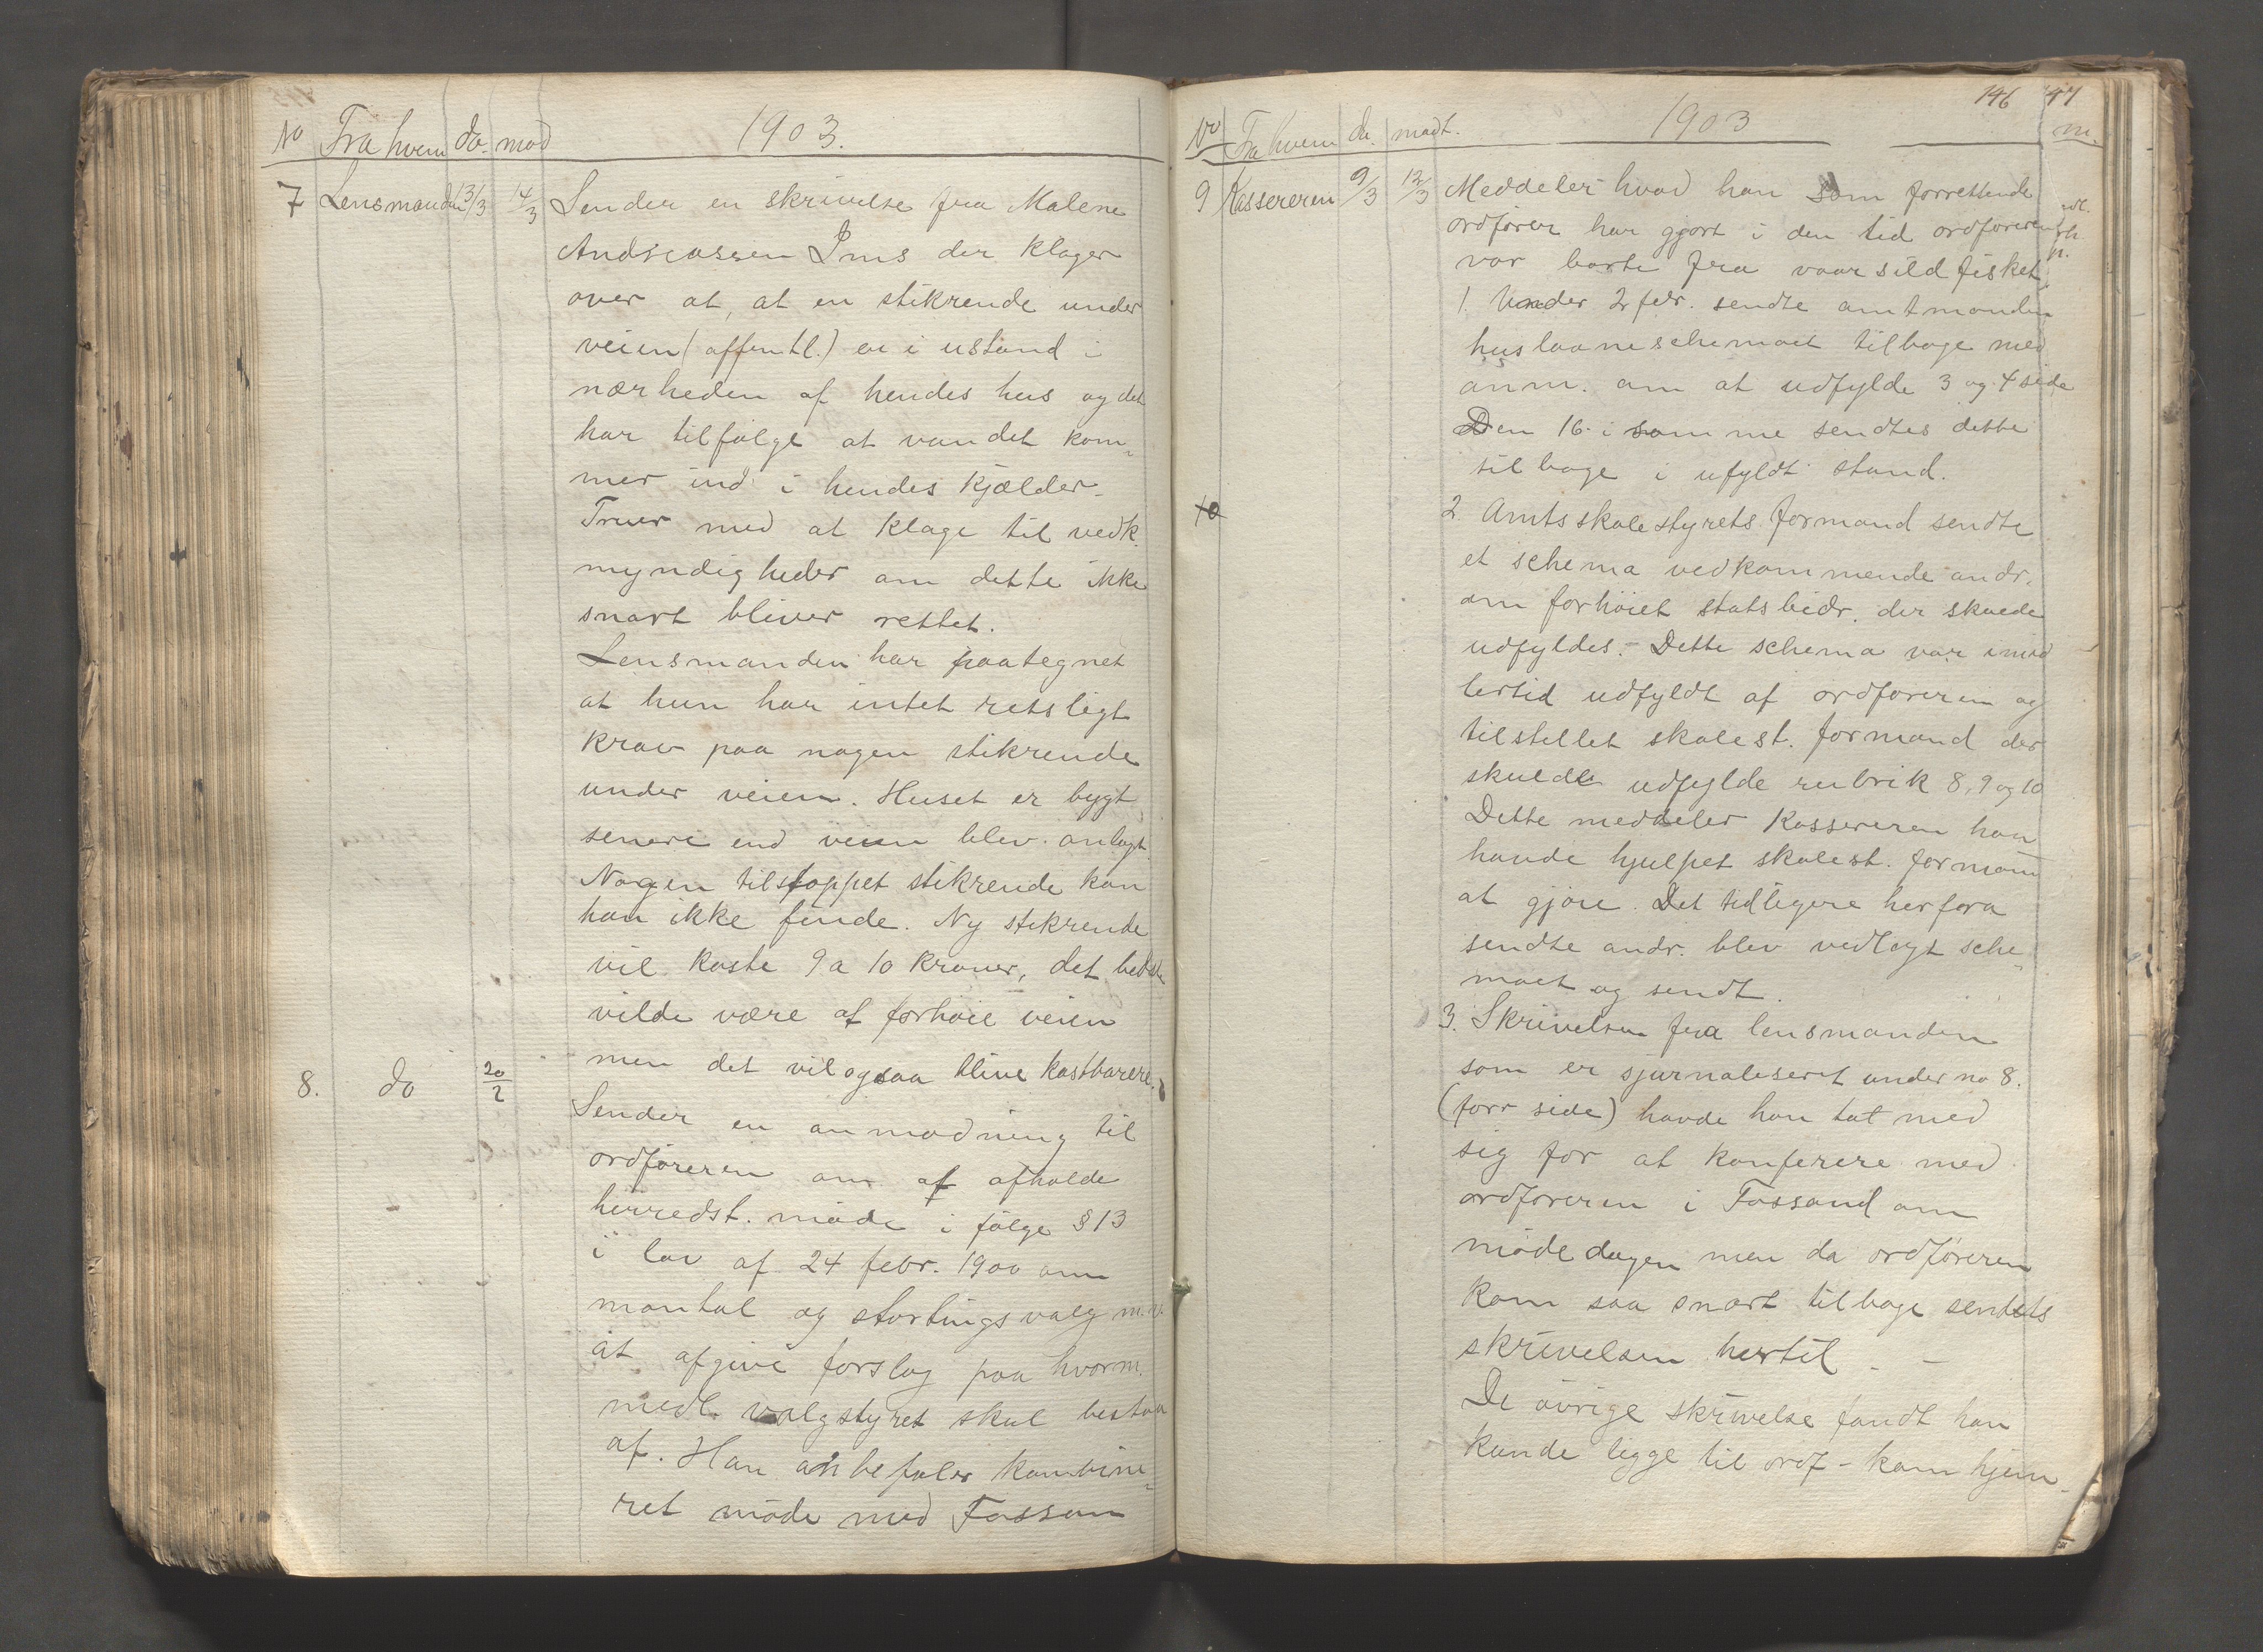 No Fra hvem da. mod 1903.
7 Lensmanden 13/3 14/3 Sender en skrivelse fra Malene
Andreassen Ims der klager
over at, at en stikrende under
veien (offentl.) er i ustand i
nærheden af hendes hus og det
har tilfølge at vandet kom„
mer ind i hendes kjælder.
Truer med at klage til vedk.
myndigheder om dette ikke
snart bliver rettet.
Lensmanden har paategnet
at hun har intet retsligt
krav paa nogen stikrende
under veien. Huset er bygt
senere end veien blev anlagt.
Nogen tilstoppet stikrende kan
han ikke finde. Ny stikrende
vil koste 9 a 10 kroner, det bedste
vilde være at forhøie veien
men det vil ogsaa blive kostbarere.
8. do 20/2
Sender en anmodning til
ordføreren om at afholde
herredst. møde i følge § 13
i lov af 24 febr. 1900 om
mantal og stortingsvalg m.v.
at afgive forslag paa hvorm.
medl. valgstyret skal bestaa
af. Han anbefaler kombine„
ret møde med Fossan
146 47
No Fra hvem da. modt. 1903 m.
9 Kassereren 9/3 12/3 Meddeler hvad han som forrettende
ordfører har gjort i den tid ordføreren
var borte fra vaarsildfisket,
1. Under 2 febr. sendte amtmanden
huslaaneschemaet tilbage med
anm. om at udfylde 3 og 4 side
Den 16. i samme sendtes dette
tilbage i ufyldt stand.
10
2 Amtsskolestyrets formand sendte
et schema vedkommende andr.
om forhøiet statsbidr. der skulde
udfyldes. - Dette schema var imid
lertid udfyldt af ordføreren og
tilstillet skolest. formand der
skulde udfylde rubrik 8, 9 og 10
Dette meddeler Kassereren han
havde hjulpet skolest. formand
at gjøre. Det tidligere herfra
sendte andr. blev vedlagt sche„
maet og sendt.
3. Skrivelsen fra lensmanden
som er sjurnaliseret under no 8.
(forr side) havde han tat med
sig for at konferere med
ordføreren i Fossand om
mødedagen men da ordføreren
kom saa snart tilbage sendtes
skrivelsen hertil. -
De øvrige skrivelse fandt han
kunde ligge til ordf - kom hjem.